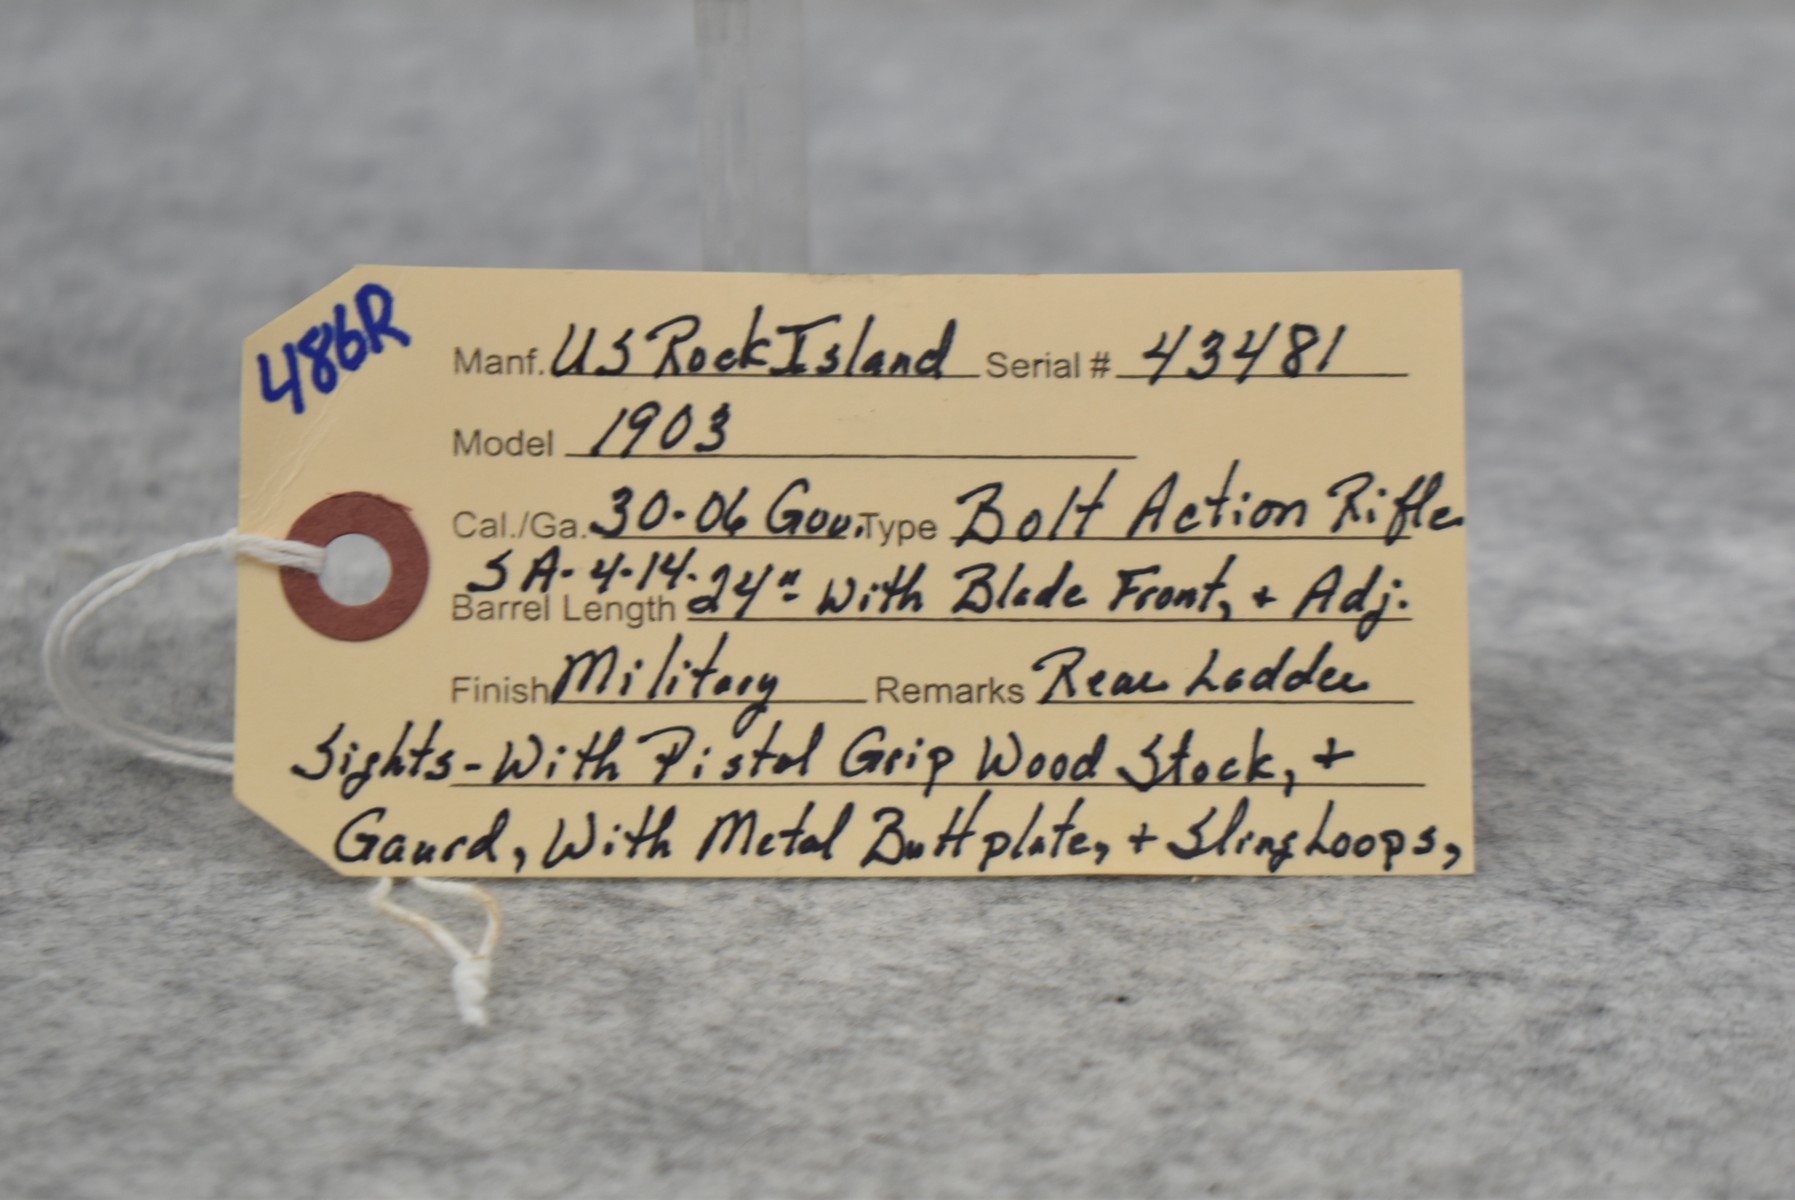 486R
Manf. US Rock Island Serial # 43481
Model 1903
Cal./Ga. 30-06 Gov. Type Bolt Action Rifle
SA-4-14.
Barrel Length 24" with Blade Front, + Adj.
Finish Military Remarks Rear Ladder
Sights - With Pistol Grip Wood Stock, +
Gaurd, With Metal Buttplate, + Sling Loops,